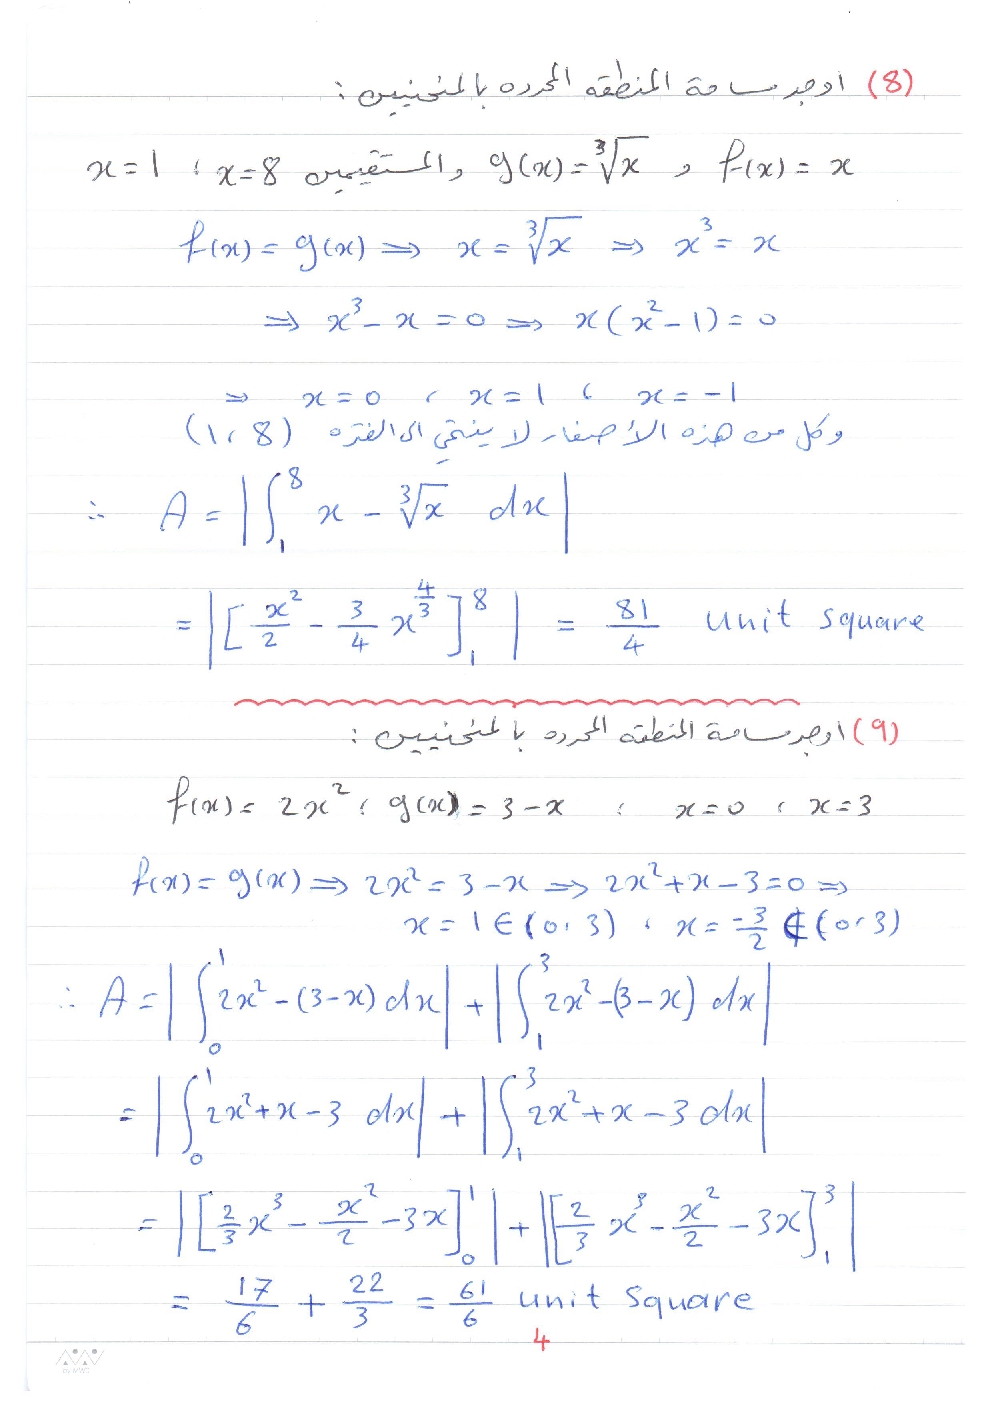 (8) اوجد مساحة المنطقه المحدده بالمنحنيين :
f(x) = x و g(x) = ∛x والمستقيمين x=8 ، x=1
f(x) = g(x) ⇒ x = ∛x ⇒ x³ = x
⇒ x³ - x = 0 ⇒ x(x² - 1) = 0
⇒ x = 0 ، x = 1 ، x = -1
وكل من هذه الأصفار لا ينتمي الى الفتره (1،8)
∴ A = |∫₁⁸ x - ∛x dx|
= |[x²/2 - 3/4 x^(4/3)]₁⁸| = 81/4 unit square
(9) اوجد مساحة المنطقه المحدده بالمنحنيين :
f(x) = 2x² ، g(x) = 3-x ، x=0 ، x=3
f(x) = g(x) ⇒ 2x² = 3-x ⇒ 2x²+x-3=0 ⇒
x = 1 ∈ (0،3) ، x = -3/2 ∉ (0،3)
∴ A = |∫₀¹ 2x² - (3-x) dx| + |∫₁³ 2x² - (3-x) dx|
= |∫₀¹ 2x²+x-3 dx| + |∫₁³ 2x²+x-3 dx|
= |[2/3 x³ - x²/2 - 3x]₀¹| + |[2/3 x³ - x²/2 - 3x]₁³|
= 17/6 + 22/3 = 61/6 unit square
4